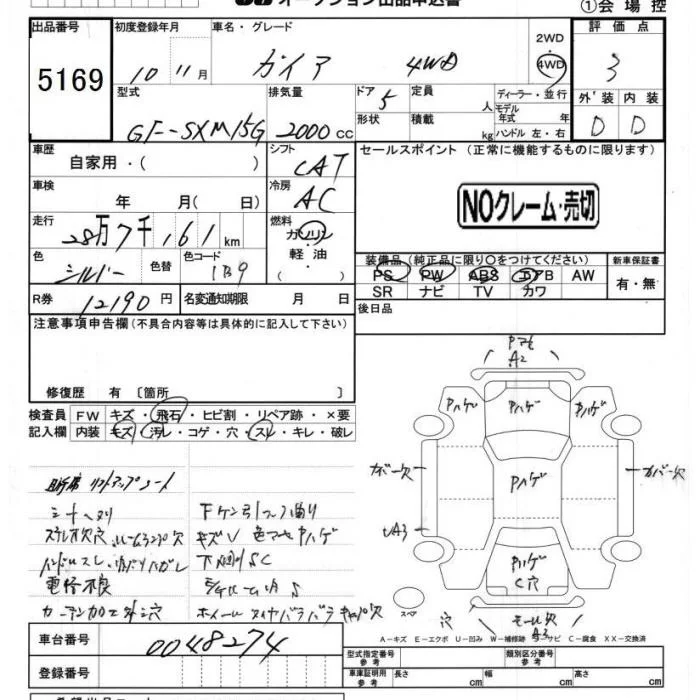 オークション出品申込書
①会場控
出品番号 初度登録年月 車名・グレード 評価点
5169 10 11月 ガイア 4WD 2WD 4WD 3
型式 排気量 ドア 定員 ディーラー・並行 外装 内装
GF-SXM15G 2000cc 5 人 モデル年式 年 D D
形状 積載 kg ハンドル 左・右
車歴 シフト セールスポイント(正常に機能するものに限ります)
自家用・( ) CAT
車検 冷房 NOクレーム・売切
年 月( 日) AC
走行 燃料
28万7千161km ガソリン
色 色替 色コード 軽油 装備品(純正品に限り○をつけてください) 新車保証書
シルバー 1B9 ・ PS PW ABS エアB AW 有・無
R券 12190円 名変通知期限 月 日 SR ナビ TV カワ
注意事項申告欄(不具合内容等は具体的に記入して下さい) 後日品
修復歴 有 〔箇所 〕
検査員 FW キズ・飛石・ヒビ割・リペア跡・×要
記入欄 内装 キズ・汚レ・コゲ・穴・スレ・キレ・破レ
A2
Pハゲ Pハゲ Pハゲ
カバー欠
Pハゲ
A3
Pハゲ
C穴
スペア 穴 モール欠
A3
助手席 リフトアップシート
下ケン引フック曲り
キズV 色マーク Pハゲ
ハンドルスレ
下回リSC
電格不良
ホイール タイヤバラバラ キャップ欠
A−キズ E−エクボ U−凹み W−補修跡 S−サビ C−腐食 XX−交換済
車台番号 0048274 型式指定番号 参考 類別区分番号 参考
登録番号 車庫証明用 参考 長さ cm 幅 cm 高さ cm